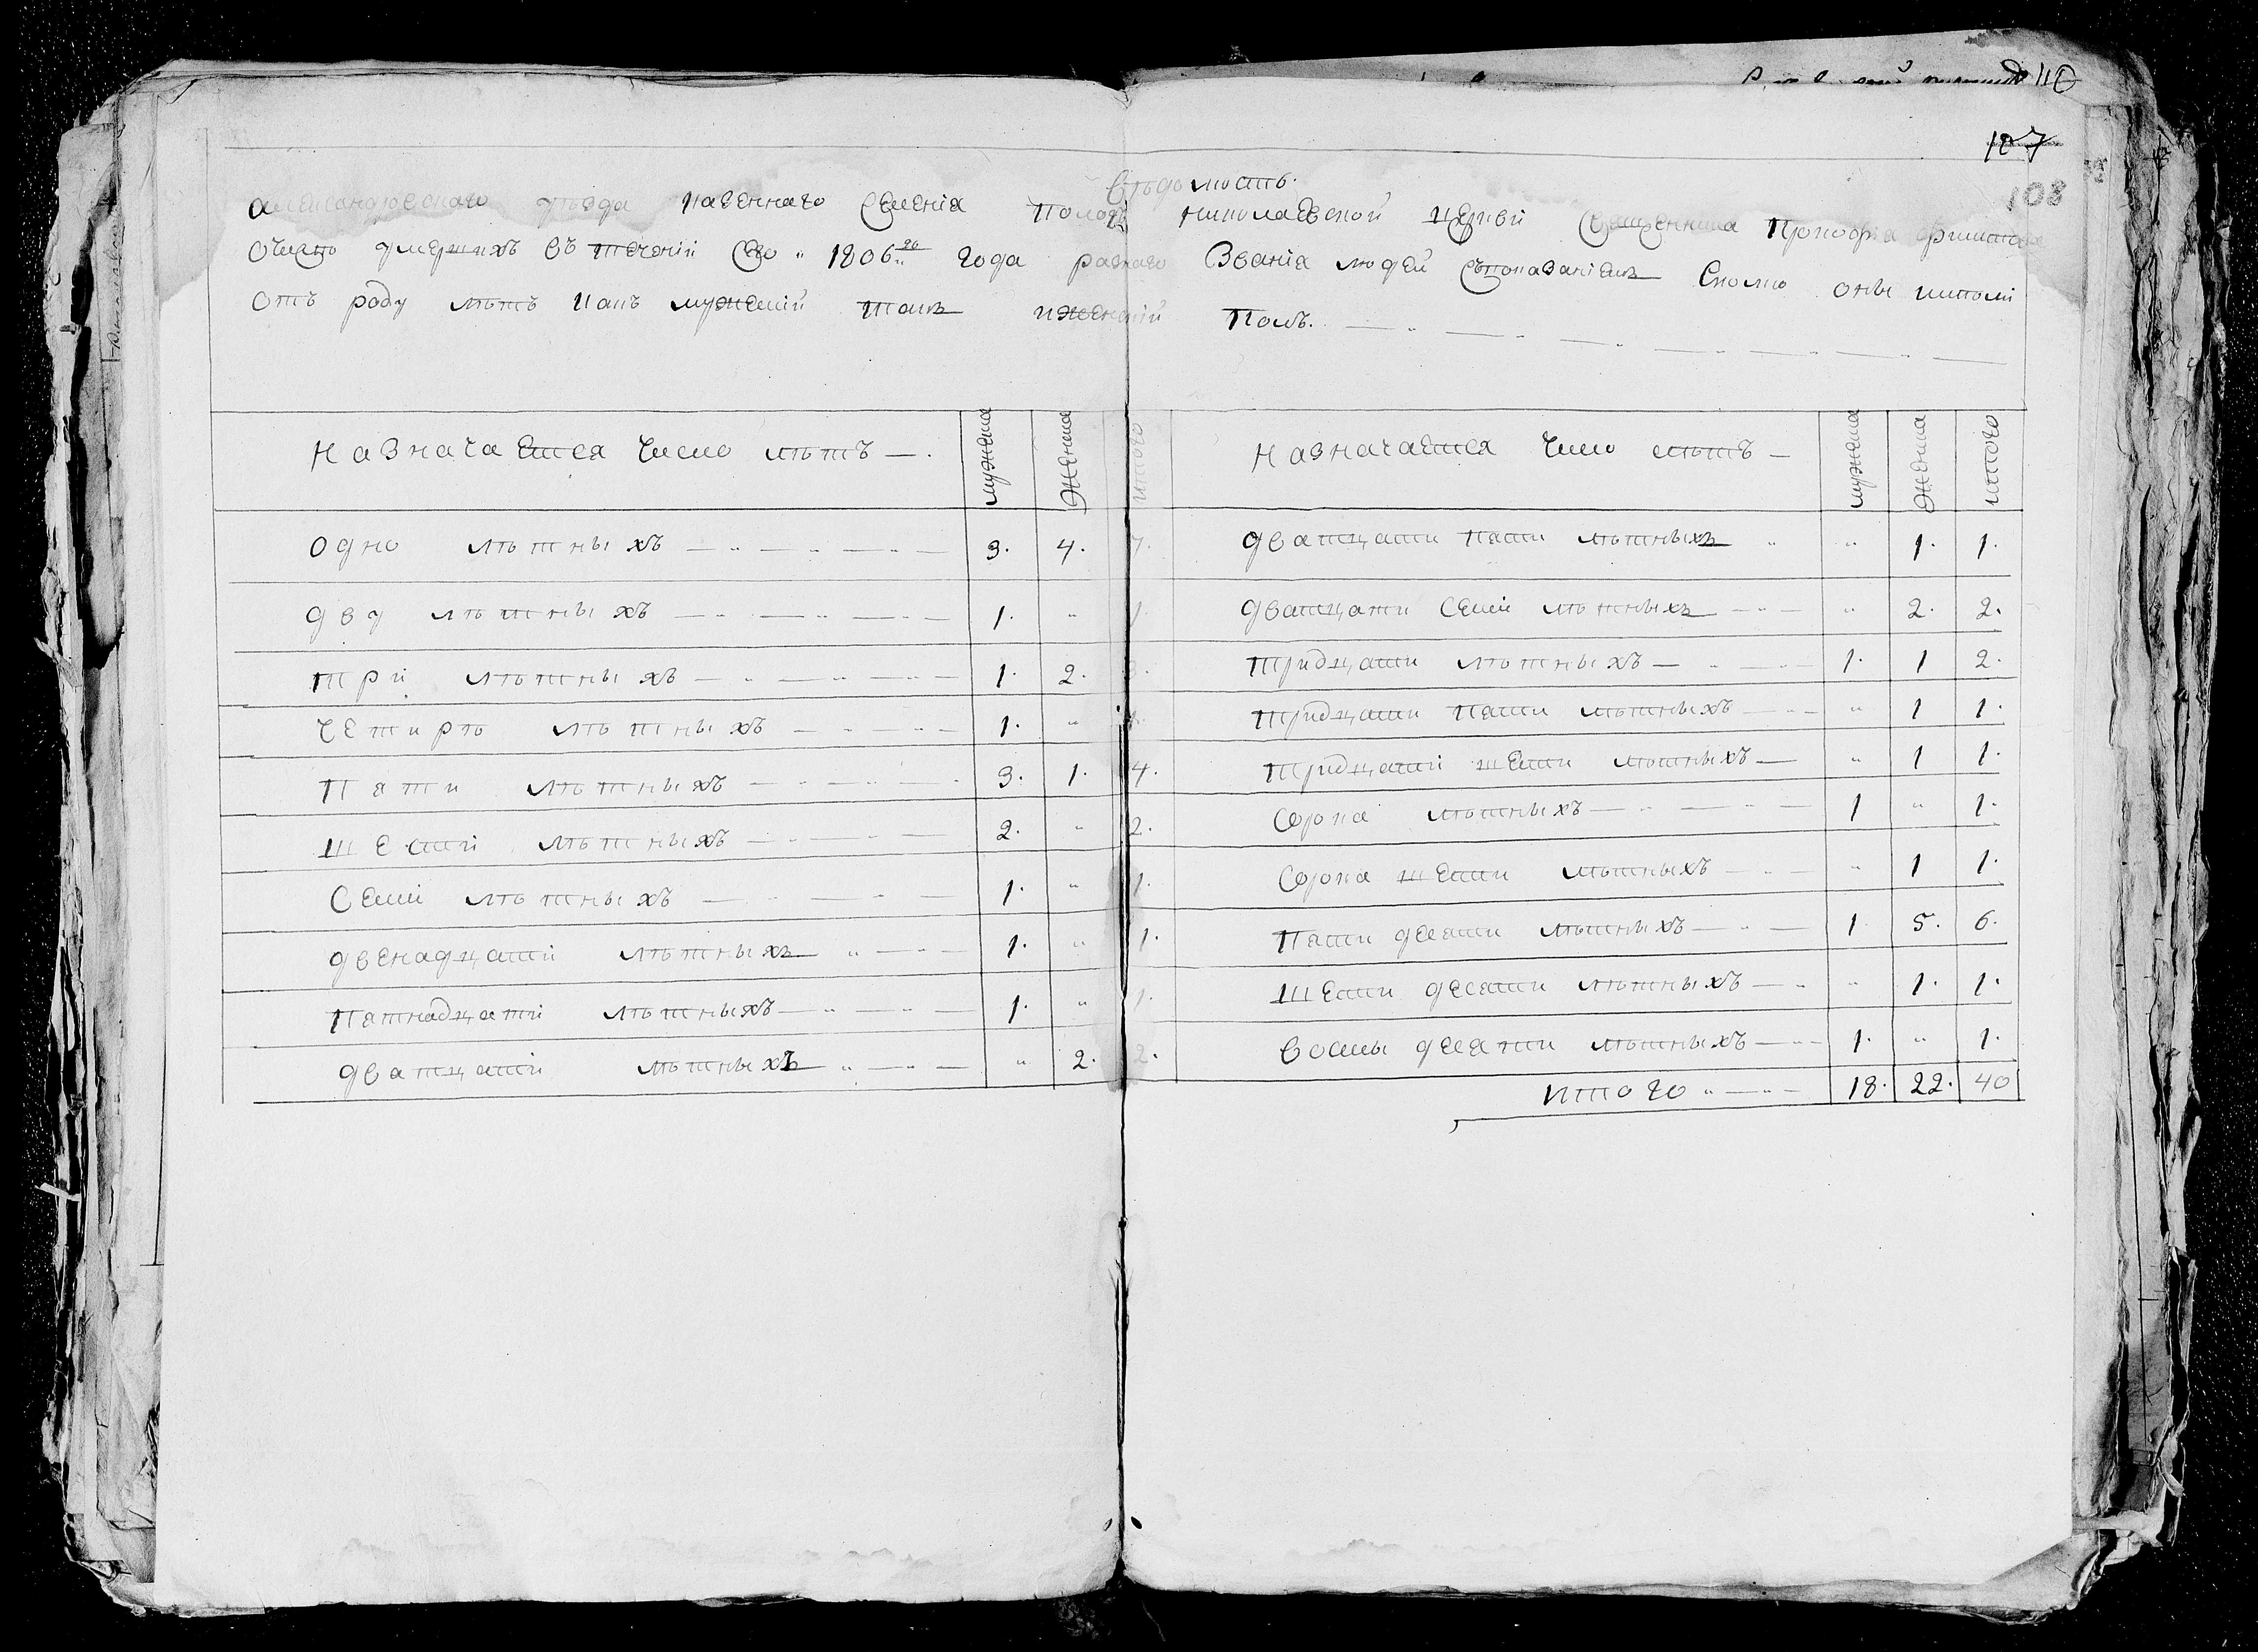 110
107
108
Вѣдомость.
Александровскаго уѣзда казеннаго селенія Пологъ Николаевской церкви священника Прокофіа
умершихъ въ теченіи сего 1806го года разнаго званія людей съпоказаніемъ сколко оны
отъ роду лѣтъ какъ мужескій такъ иженскій полъ.
Назначается число лѣтъ мужеска женска итого
Одно лѣтныхъ 3. 4. 7.
дву лѣтныхъ 1. „ 1.
три лѣтныхъ 1. 2. 3.
четирѣ лѣтныхъ 1. „ 1.
пяти лѣтныхъ 3. 1. 4.
шести лѣтныхъ 2. „ 2.
семи лѣтныхъ 1. „ 1.
двенадцати лѣтныхъ 1. „ 1.
пятнадцати лѣтныхъ 1. „ 1.
дватцати лѣтныхъ „ 2. 2.
Назначается число лѣтъ мужеска женска итого
дватцати пяти лѣтныхъ „ 1. 1.
дватцати семи лѣтныхъ „ 2. 2.
тридцати лѣтныхъ 1. 1 2.
тридцати пяти лѣтныхъ „ 1 1.
тридцати шести лѣтныхъ „ 1 1.
сорока лѣтныхъ 1 „ 1.
сорока шести лѣтныхъ „ 1 1.
пяти десяти лѣтныхъ 1 5. 6.
шести десяти лѣтныхъ „ 1. 1.
восмы десяти лѣтныхъ 1. „ 1.
итого 18. 22. 40